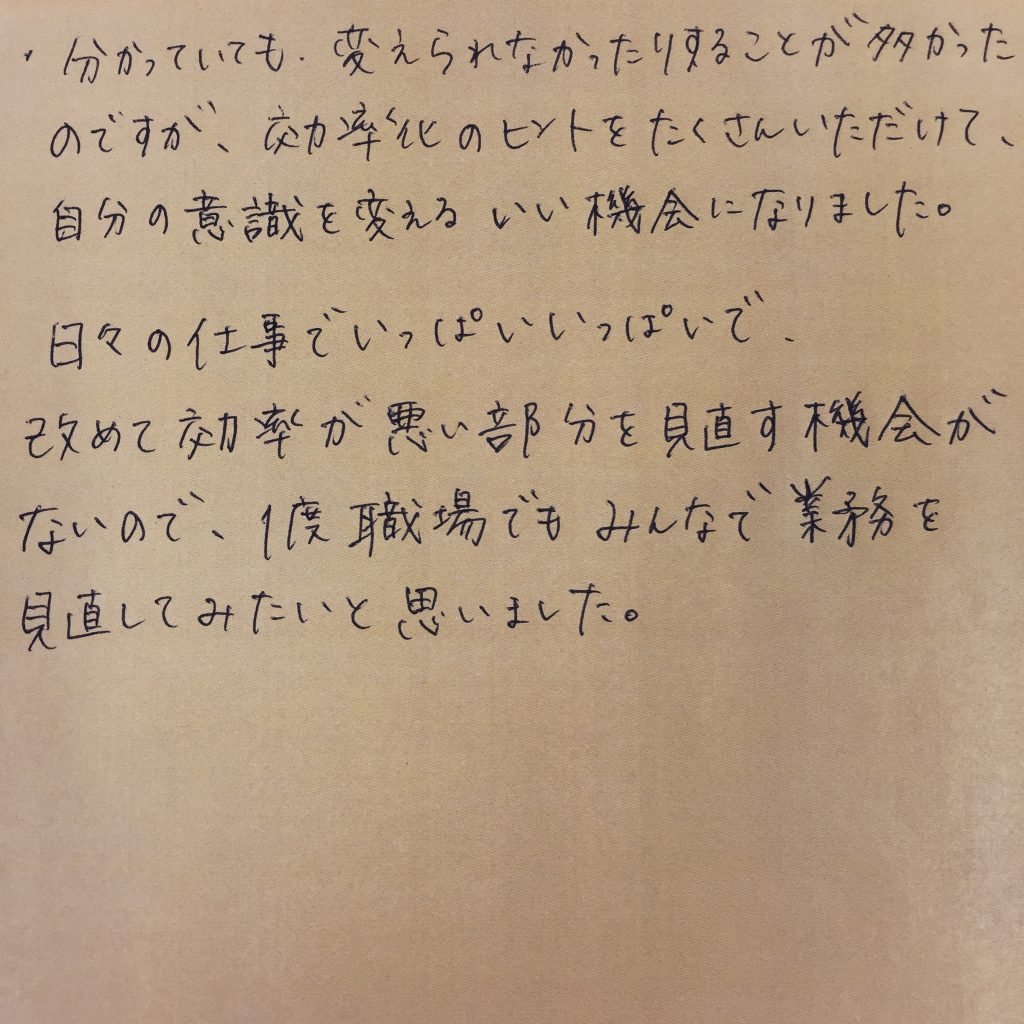 ・分かっていても、変えられなかったりすることが多かった
のですが、効率化のヒントをたくさんいただけて、
自分の意識を変えるいい機会になりました。
日々の仕事でいっぱいいっぱいで、
改めて効率が悪い部分を見直す機会が
ないので、1度職場でもみんなで業務を
見直してみたいと思いました。